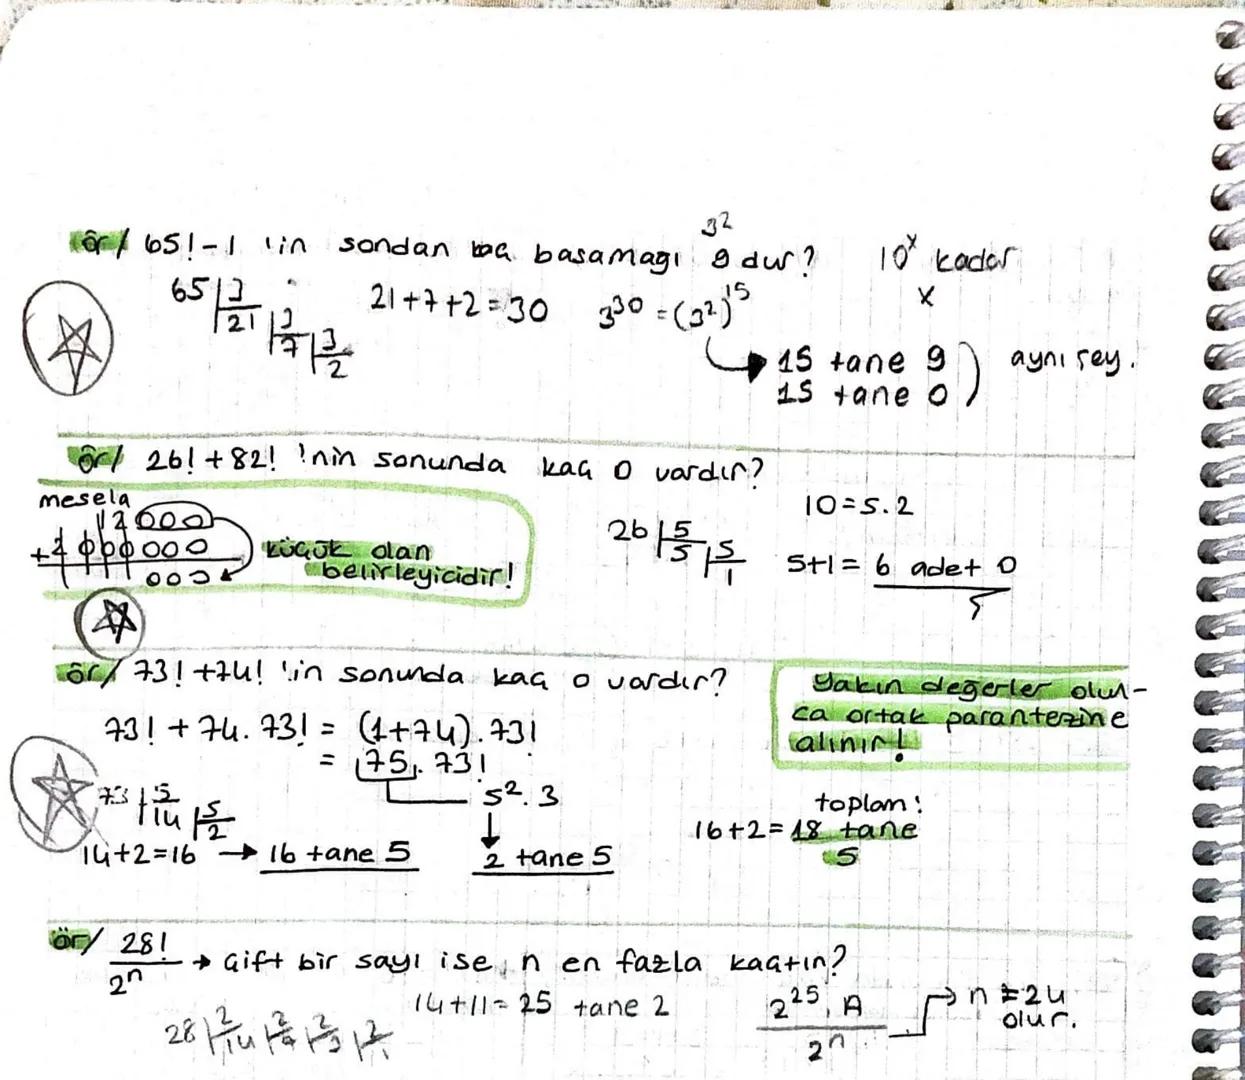 3²
ör/ 65!-1 'in sondan kaç basamağı 9 dur? 10ˣ kadar
x
65 | 3
21 | 3
7 | 3
2
21+7+2=30 3³⁰ = (3²)¹⁵
15 tane 9
15 tane 0
aynı şey.
ör/ 26!+82! 'nin sonunda kaç 0 vardır?
mesela
12000
+1000000
000
küçük olan
belirleyicidir!
26 | 5
5 | 5
1
10=5.2
5+1= 6 adet 0
ör/ 73!+74! 'in sonunda kaç 0 vardır?
73! + 74. 73! = (1+74). 73!
= 75. 73!
5². 3
73 | 5
14 | 5
2
14+2=16 → 16 tane 5
2 tane 5
Yakın değerler olun-
ca ortak parantezine
alınır!
toplam:
16+2= 18 tane
5
ör/ 28!
2ⁿ
→ çift bir sayı ise, n en fazla kaçtır?
14+11= 25 tane 2
28 | 2
14 | 2
| 2
3 | 2
1
2²⁵. A
2ⁿ
→ n = 24
olur.